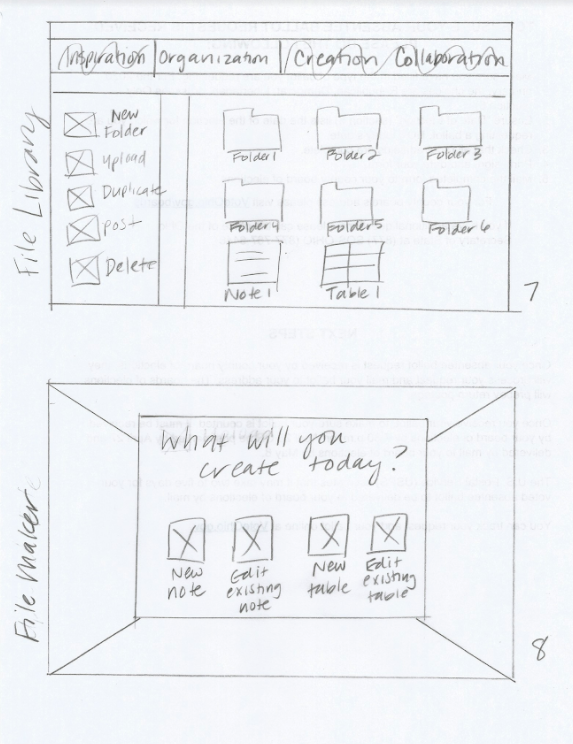 File Library
Inspiration Organization Creation Collaboration
New
Folder
Upload
Duplicate
post
Delete
Folder 1 Folder 2 Folder 3
Folder 4 Folder 5 Folder 6
Note 1 Table 1
7
File Maker
What will you
create today?
New
note
Edit
existing
note
New
table
Edit
existing
table
8